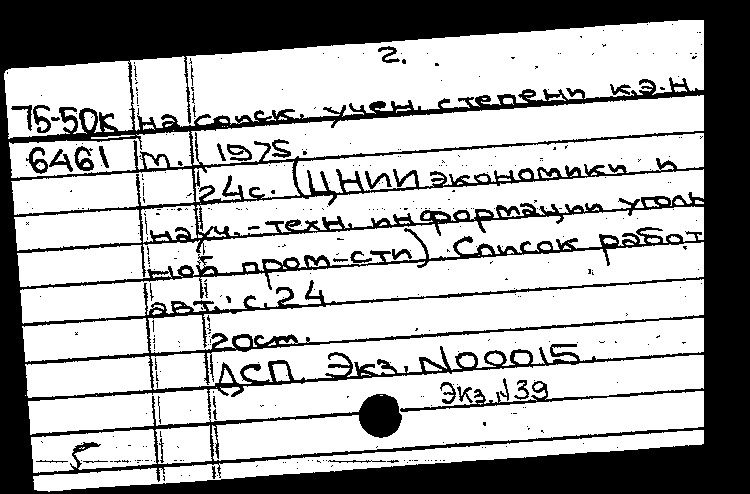 2.
75-50к на соиск. учен. степени к.э.н.
6461 т., 1975.
24с. (ЦНИИ экономики и
науч.-техн. информации уголь
ной пром-сти). Список работ
авт.: с. 24.
20см.
ДСП. Экз. N00015.
Экз. N39
5